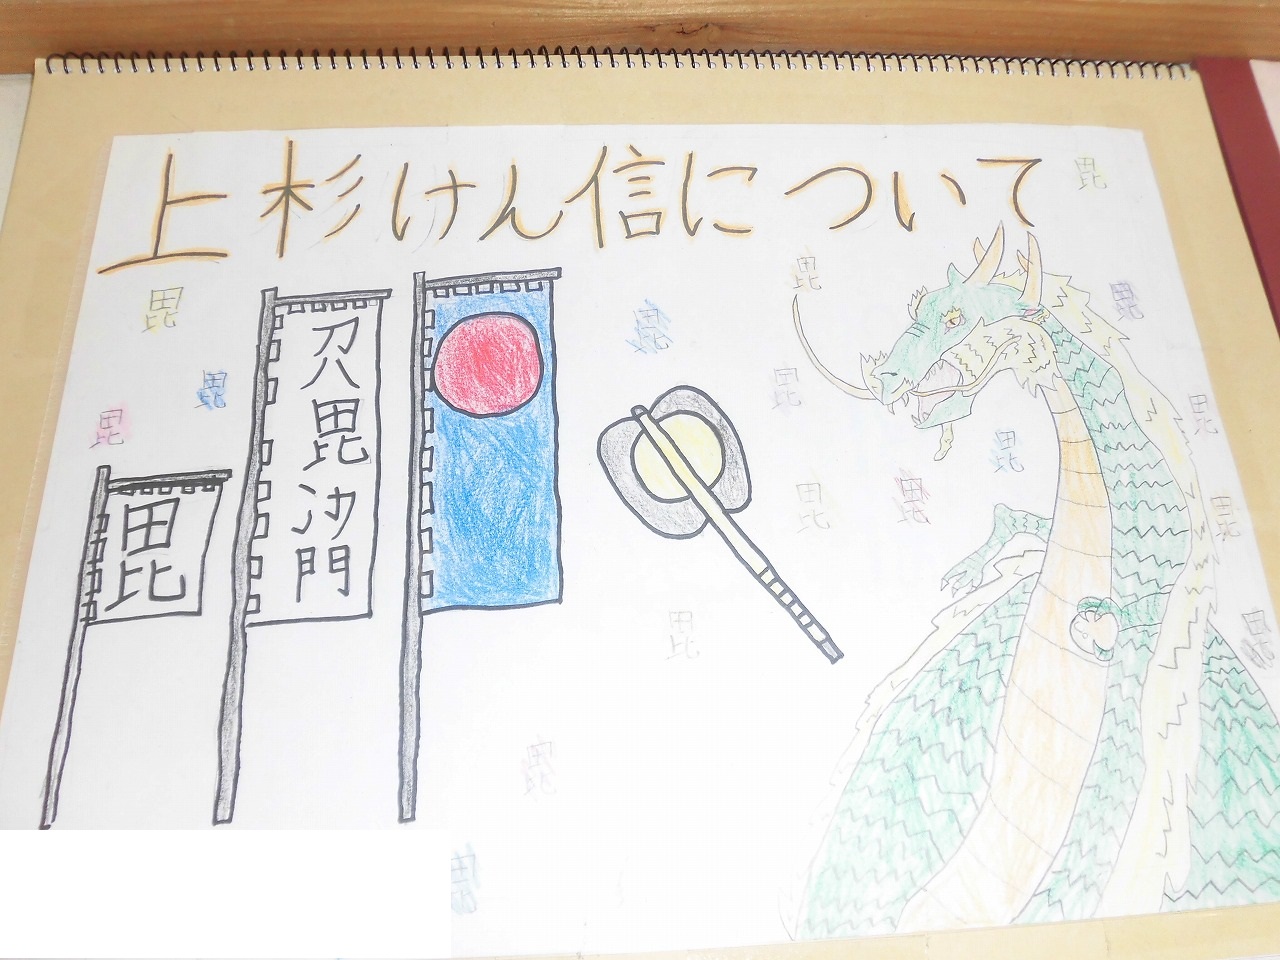 上杉けん信について
毘
毘
毘
毘
毘
刀八毘沙門
毘
毘
毘
毘
毘
毘
毘
毘
毘
毘
毘
毘
毘